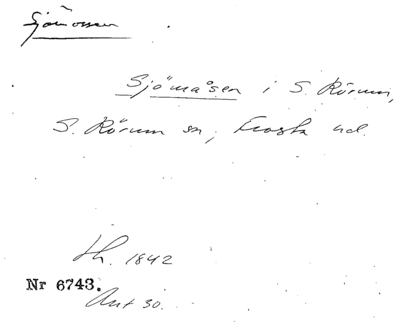 Sjömossen
Sjömåsen i S. Rörum,
S. Rörum sn, Frosta hd.
lh. 1842
Nr 6743.
Ant 30.